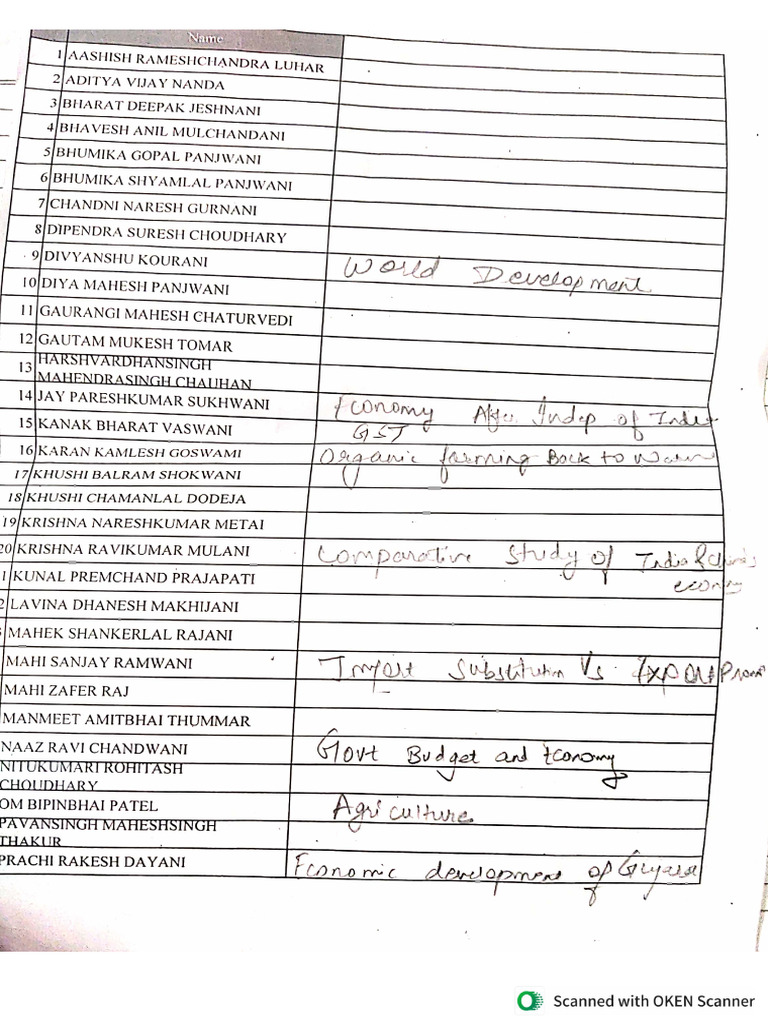 Name
1 AASHISH RAMESHCHANDRA LUHAR
2 ADITYA VIJAY NANDA
3 BHARAT DEEPAK JESHNANI
4 BHAVESH ANIL MULCHANDANI
5 BHUMIKA GOPAL PANJWANI
6 BHUMIKA SHYAMLAL PANJWANI
7 CHANDNI NARESH GURNANI
8 DIPENDRA SURESH CHOUDHARY
9 DIVYANSHU KOURANI World Development
10 DIYA MAHESH PANJWANI
11 GAURANGI MAHESH CHATURVEDI
12 GAUTAM MUKESH TOMAR
13 HARSHVARDHANSINGH
MAHENDRASINGH CHAUHAN
14 JAY PARESHKUMAR SUKHWANI Economy After Indep of India
15 KANAK BHARAT VASWANI GST
16 KARAN KAMLESH GOSWAMI Organic farming Back to
17 KHUSHI BALRAM SHOKWANI
18 KHUSHI CHAMANLAL DODEJA
19 KRISHNA NARESHKUMAR METAI
20 KRISHNA RAVIKUMAR MULANI Comparative Study of India &
economy
1 KUNAL PREMCHAND PRAJAPATI
2 LAVINA DHANESH MAKHIJANI
MAHEK SHANKERLAL RAJANI
MAHI SANJAY RAMWANI Import Substitution Vs Export
MAHI ZAFER RAJ
MANMEET AMITBHAI THUMMAR
NAAZ RAVI CHANDWANI Govt Budget and Economy
NITUKUMARI ROHITASH
CHOUDHARY
OM BIPINBHAI PATEL Agriculture
PAVANSINGH MAHESHSINGH
THAKUR
PRACHI RAKESH DAYANI Economic development of
Scanned with OKEN Scanner